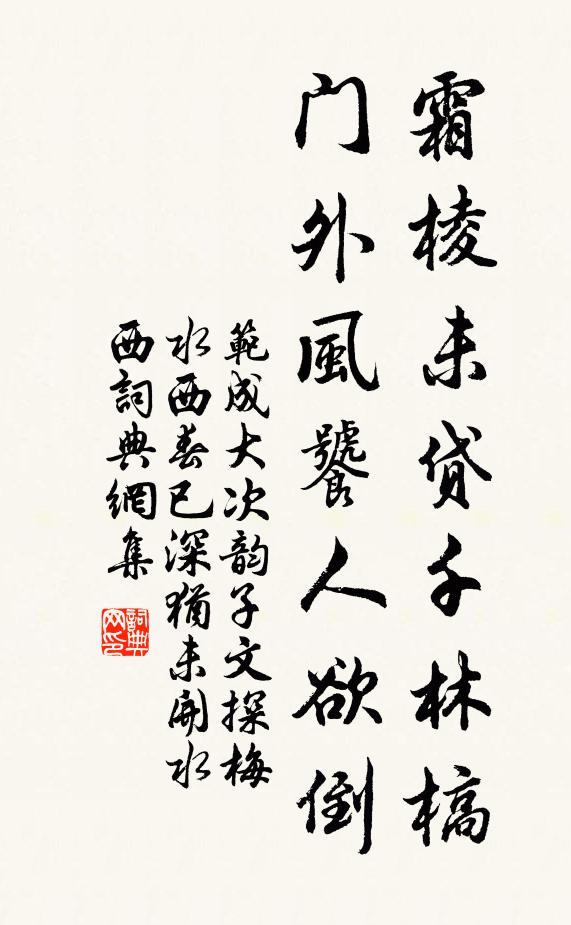 霜棱未贷千林槁
门外風饕人欲倒
範成大次韵子文探梅
水西春已深猶未開水
西詞典網集
詞典网印